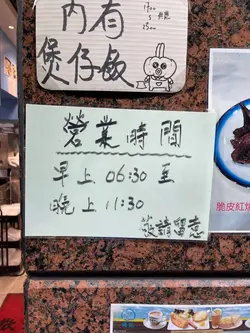 內有
煲仔飯
營業時間
早上 06:30 至
晚上 11:30
敬請留意
脆皮紅燒